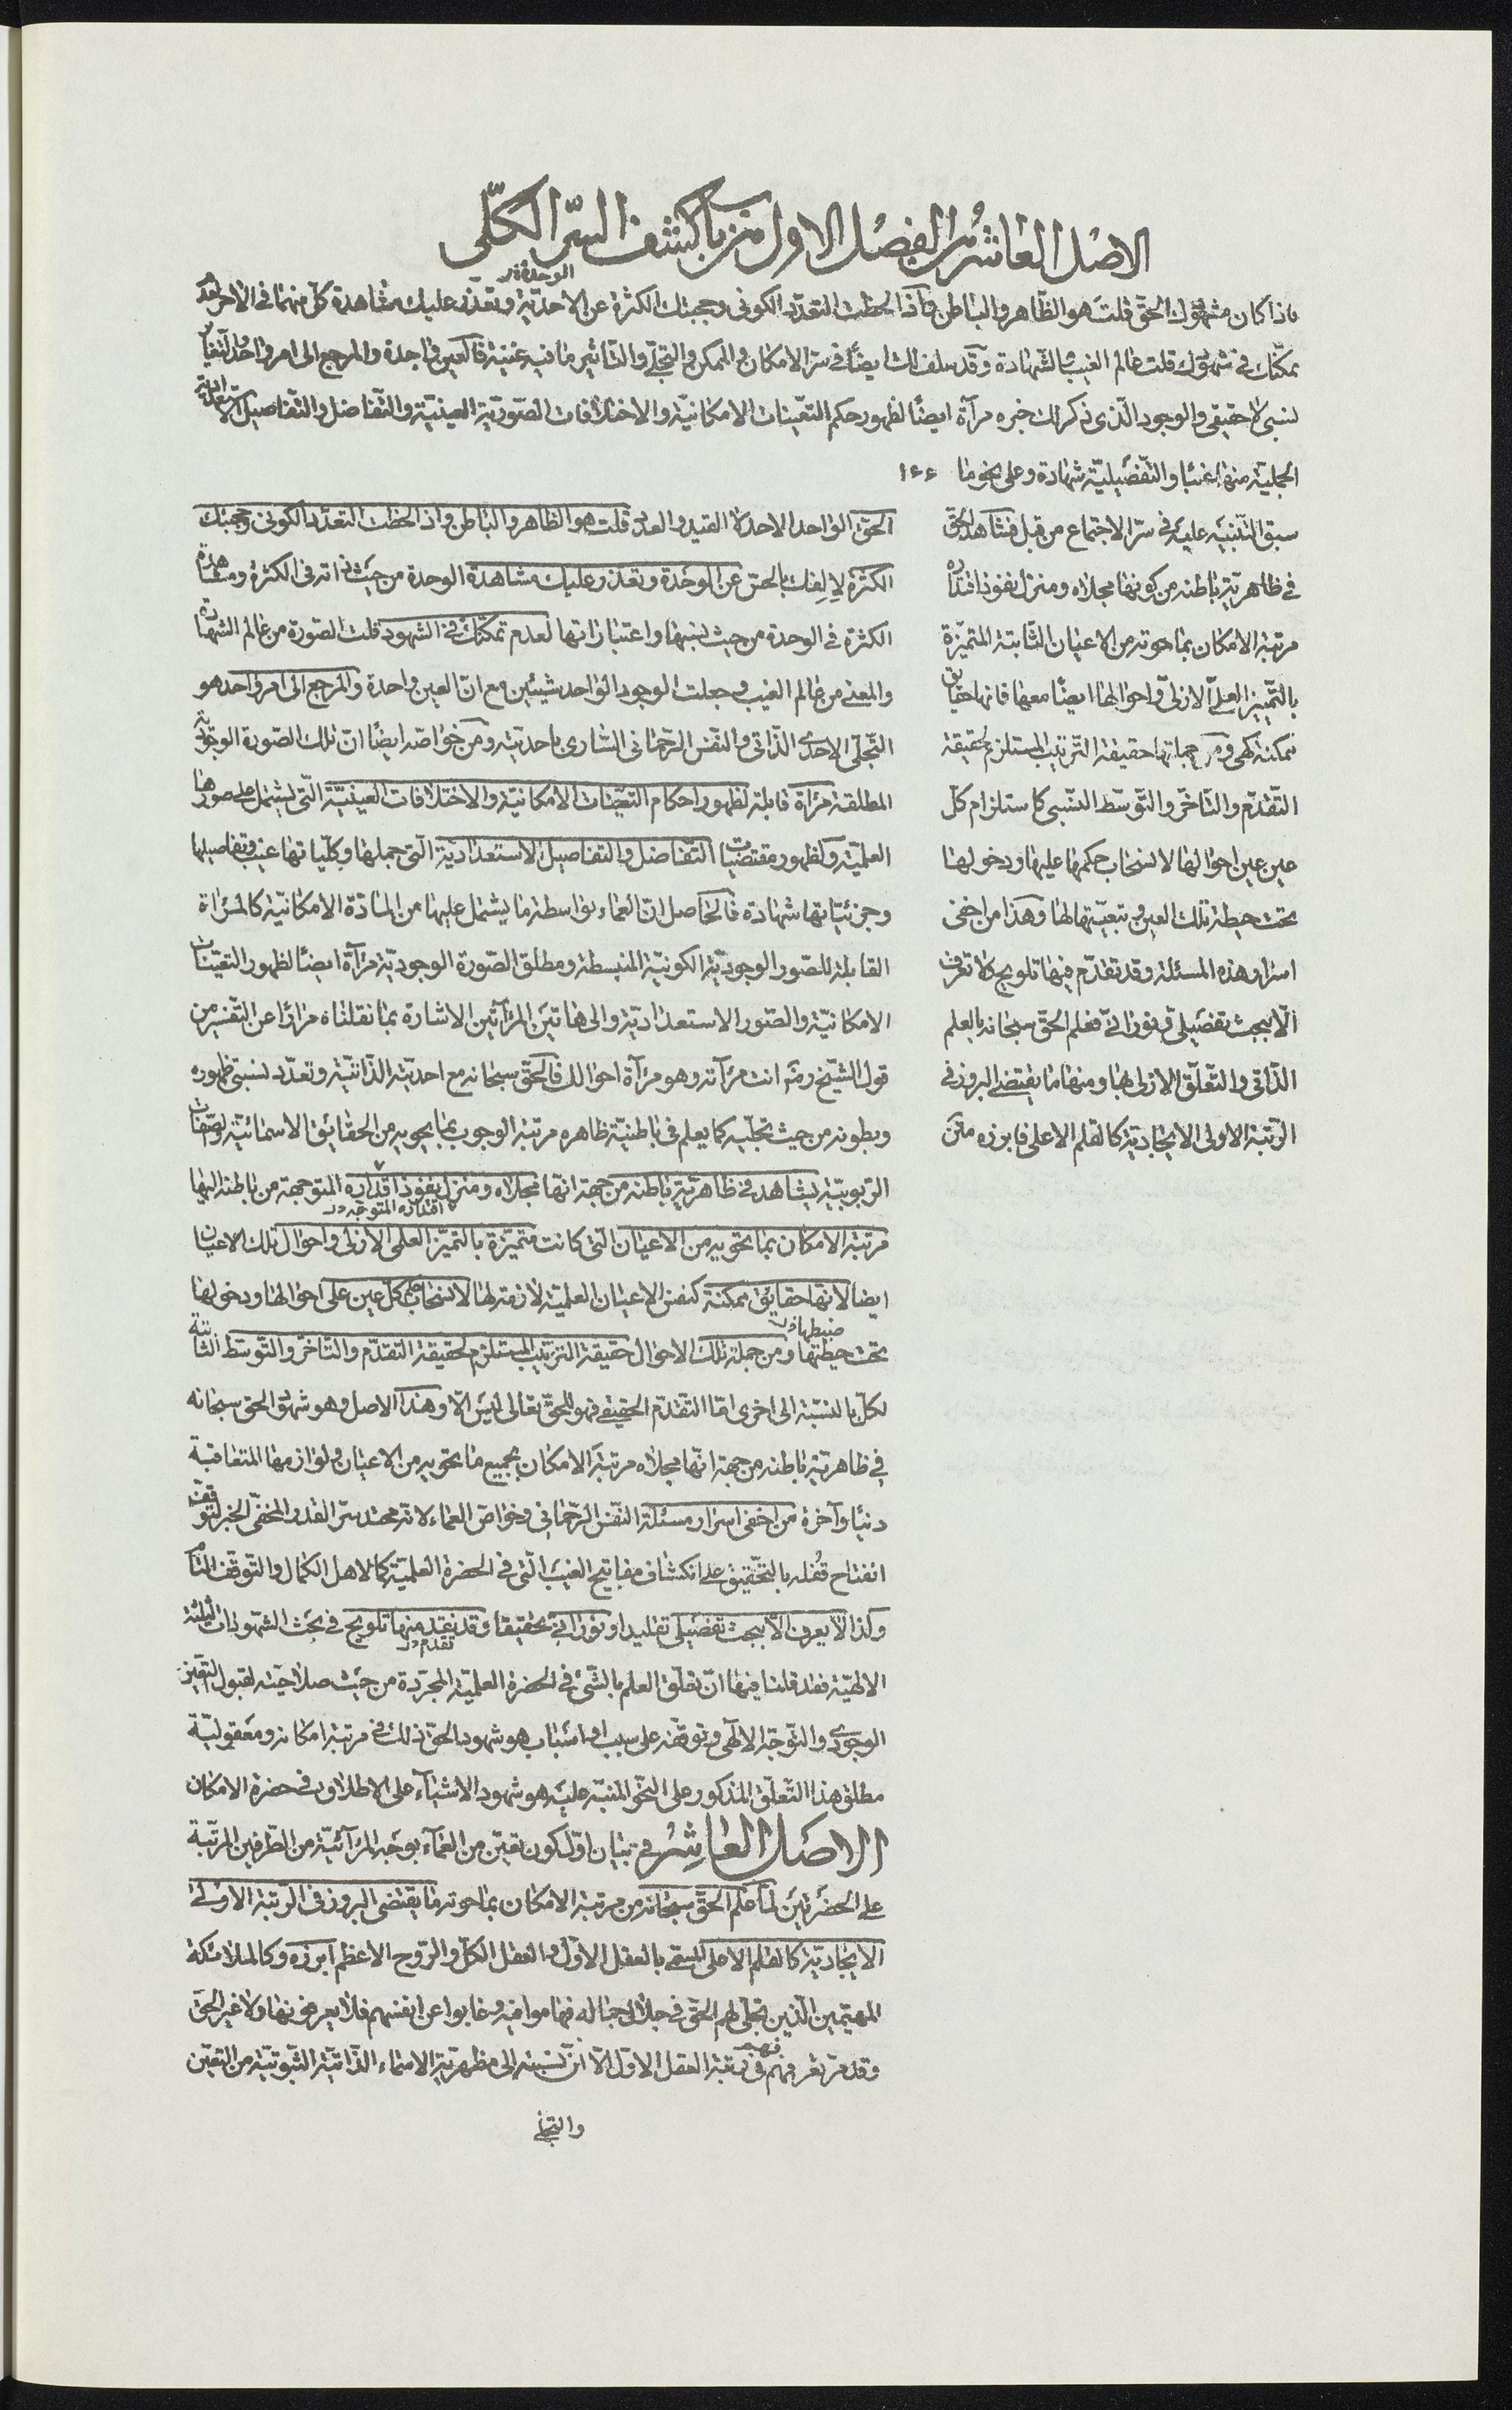 الاصل العاشر من الفصل الاول من باب كشف السرّ الكلّى
الوحدة
فاذا كان مشهودك الحقّ قلت هو الظّاهر والباطن واذا لحظت التعدّد الكونى وحجبتك الكثرة عن الاحديّة وتعذّر عليك مشاهدة كلّ منهما فى الاخر لعدم
تمكّنك فى شهودك قلت عالم الغيب والشّهادة وقد سلف لك ايضًا فى سرّ الامكان والممكن والتجلّى والتّاثير ما فيه غنية فالعين واحدة والمرجع الى امر واحد والتّغاير
نسبى لا حقيقى والوجود الّذى ذكر لك خبره مرآة ايضًا لظهور حكم التعّينات الامكانيّة والاختلافات الصّوريّة العينيّة والتّفاضل والتّفاصيل الاستعدادية
الجمليّة منها غيبًا والتّفصيليّة شهادة وعلى نحو ما
سبق التّنبيه عليه فى سرّ الاجتماع من قبل فشاهد الحقّ
فى ظاهريّة باطنه من كونها مجلاه ومنزل نفوذ اقتداره
مرتبة الامكان بما حوته من الاعيان الثّابتة المتميّزة
بالتّمييز العلمى الازلىّ واحوالها ايضًا معها فانها حقايق
ممكنة كهى ومن جملتها حقيقة التّرتيب المستلزم لحقيقة
التّقدّم والتّاخّر والتّوسّط النّسبى كاستلزام كلّ
عين عين احوالها لانسحاب حكمها عليها ودخولها
تحت حيطة تلك العين وتبعيّتها لها وهذا من اخفى
اسرار هذه المسئلة وقد تقدّم فيها تلويح لا تعرف
الّا ببحث تفصيلى او نورانىّ فعلم الحقّ سبحانه بالعلم
الذّاتى والتّعلّق الازلى بها ومنها ما يقتضى البروز فى
الرّتبة الاولى الايجاديّة كالقلم الاعلى فابرزه
الحقّ الواحد الاحد قلت هو الظاهر والباطن واذا لحظت التعدّد الكونى وحجبتك
الكثرة لالفك بالحسّ عن الوحدة وتعذّر عليك مشاهدة الوحدة من حيث ذاته فى الكثرة ومشاهدة
الكثرة فى الوحدة من حيث نسبتها واعتباراتها لعدم تمكّنك فى الشهود قلت الصّورة من عالم الشهادة
والمعنى من عالم الغيب وجعلت الوجود الواحد شيئين مع انّ العين واحدة والمرجع الى امر واحد هو
التّجلّى الاحدى الذّاتى والنّفس الرّحمانى السّارى باحديّته ومن خواصّه ايضًا انّ تلك الصّورة الوجوديّة
المطلقة مرآة قابلة لظهور احكام التعيّنات الامكانيّة والاختلافات العينيّة الّتى يشتمل على صورها
العلميّة ولظهور مقتضيات التّفاضل والتفاصيل الاستعداديّة الّتى جملها وكلّياتها غيب وتفاصيلها
وجزئيّاتها شهادة فالحاصل انّ العماء بواسطة ما يشتمل عليها من المادّة الامكانيّة كالمرآة
القابلة للصّور الوجوديّة الكونيّة المنبسطة ومطلق الصّورة الوجوديّة مرآة ايضًا لظهور التعيّنات
الامكانيّة والصّور الاستعداديّة والى هاتين المرآتين الاشارة بما نقلناه مرارًا عن التّفسير من
قول الشّيخ رضه انت مرآته وهو مرآة احوالك فالحقّ سبحانه مع احديّته الذّاتيّة وتعدّد نسبتى ظهوره
وبطونه من حيث تجلّيه كما يعلم فى باطنيّة ظاهره مرتبة الوجوب بما يحويه من الحقائق الاسمائيّة والصّفات
الرّبوبيّة يشاهد فى ظاهريّة باطنه من جهة انّها مجلاه ومنزل نفوذ اقداره المتوجهة من باطنه اليها
اقتداره المتوجّه
مرتبة الامكان بما يحويه من الاعيان التى كانت متميّزة بالتميّز العلمى الازلى واحوال تلك الاعيان
ايضا لانّها حقايق ممكنة كنفس الاعيان العلميّة لازمة لها لانسحاب حكم كلّ عين على احوالها ودخولها
تحت حيطتها ومن جملة تلك الاحوال حقيقة التّرتيب المستلزم لحقيقة التقدّم والتّاخّر والتّوسّط الثّابتة
لكلّ بالنّسبة الى اخرى امّا التّقدّم الحقيقى فهو للحقّ تعالى ليس الّا وهذا الاصل وهو شهود الحق سبحانه
فى ظاهريّة باطنه من جهة انّها مجلاه مرتبة الامكان بجميع ما يحويه من الاعيان ولوازمها المتعاقبة
دنيا وآخرة من اخفى اسرار مسئلة النّفس الرّحمانى وخواصّ العماء لانّه محتد سرّ القدر المخفّى الخبر لتوقّف
انفتاح قفله بالتّحقيق على انكشاف مفاتيح الغيب الّتى فى الحضرة العلميّة كما لاهل الكمال والتّوقّف التّام
وكذا لا يعرف الّا ببحث تفصيلى تقليدا او نورانىّ تحقيقا وقد تقدّم منها تلويح فى بحث الشّهودات الثّلثة
تقدم
الالهيّة فقد قلنا فيها انّ تعلّق العلم بالشّئ فى الحضرة العلميّة المجرّدة من حيث صلاحيّته لقبول التعيّن
الوجودى والتّوجّه الالهى وتوقّفه على سبب او اسباب هو شهود الحقّ ذلك فى مرتبة امكانه ومعقوليّة
مطلق هذا التّعلّق المذكور على النّحو المنبّه عليه هو شهود الاشيآء على الاطلاق فى حضرة الامكان
الاصل العاشر فى بيان اوّل كون تعيّن من العمآء بوجه المرآئيّة من الطّرفين المرتّبة
على الحضرتين لمّا علم الحقّ سبحانه من مرتبة الامكان بما حوته ما يقتضى البروز فى الرّتبة الاولى
الايجاديّة كالقلم الاعلى المسمّى بالعقل الاوّل والعقل الكلّ والرّوح الاعظم ابرزه وكالملائكة
المهيّمين الّذين تجلّى لهم الحقّ فى جلال جماله فهاموا فيه وغابوا عن انفسهم فلا يعرفونها ولا غير الحقّ
وقد مرّ تعريفهم فهم فى رتبة العقل الاوّل الّا انّ نسبته الى مظهريّة الاسماء الذّاتيّة الثّبوتيّة من التعيّن
والتجلّى